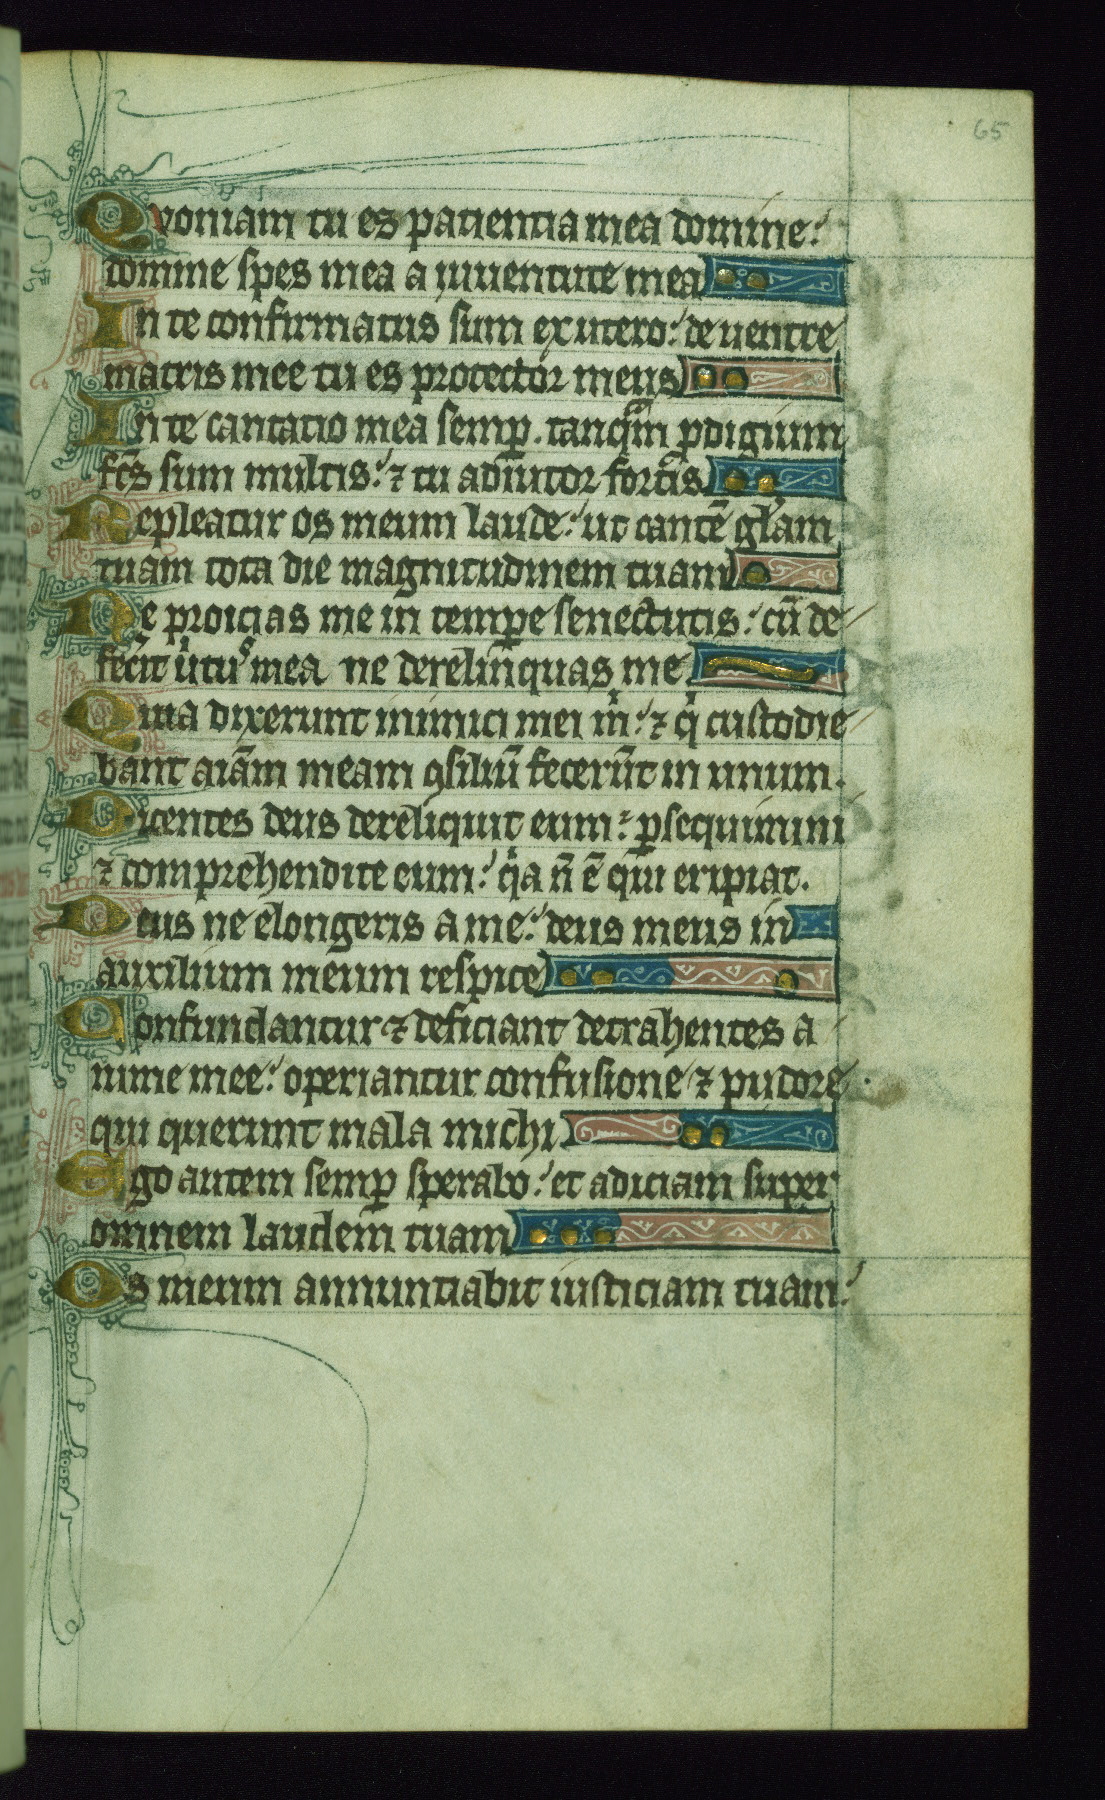 65
Quoniam tu es patientia mea domine:
domine spes mea a iuuentute mea
In te confirmatus sum ex utero: de uentre
matris mee tu es protector meus
In te cantatio mea semꝑ. tanqͣm ꝓdigium
fc̄s sum multis: ⁊ tu adiutor fortis
Repleatur os meum laude: ut cantē gl̄am
tuam tota die magnitudinem tuam
Ne proicias me in temꝑe senectutis: cū de
fecͥit uͥtuˢ mea ne derelinquas me
Quia dixerunt inimici mei mͥ: ⁊ qͥ custodie
bant aīam meam ꝯsiliū fecerūt in unum.
Dicentes deus dereliquit eum: ꝑsequimini
⁊ comprehendite eum: qͥa n̄ ē qui eripiat.
Deus ne elongeris a me: deus meus in
auxilium meum respice
Confundantur ⁊ deficiant detrahentes a
nime mee: operiantur confusione ⁊ pudore
qui querunt mala michi
Ego autem semꝑ sperabo: et adiciam super
omnem laudem tuam
Os meum annuntiabit iusticiam tuam: